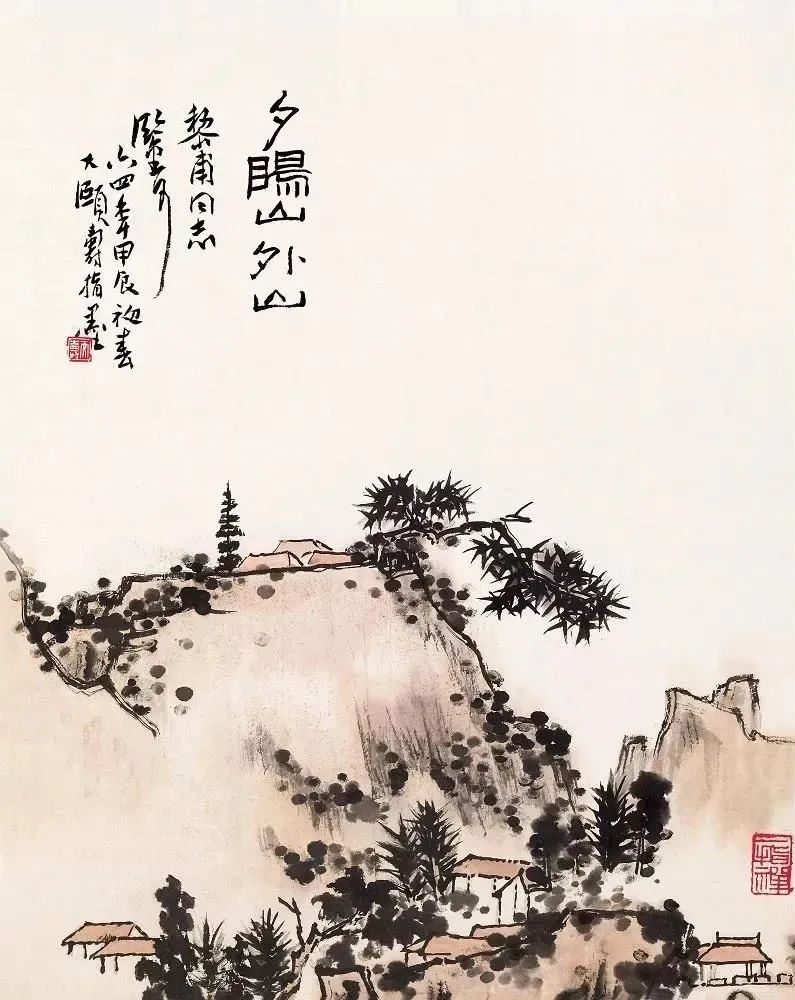 夕陽山外山
黎甫同志
鑒可
六四年甲辰初春
大頤壽指墨
一指禪